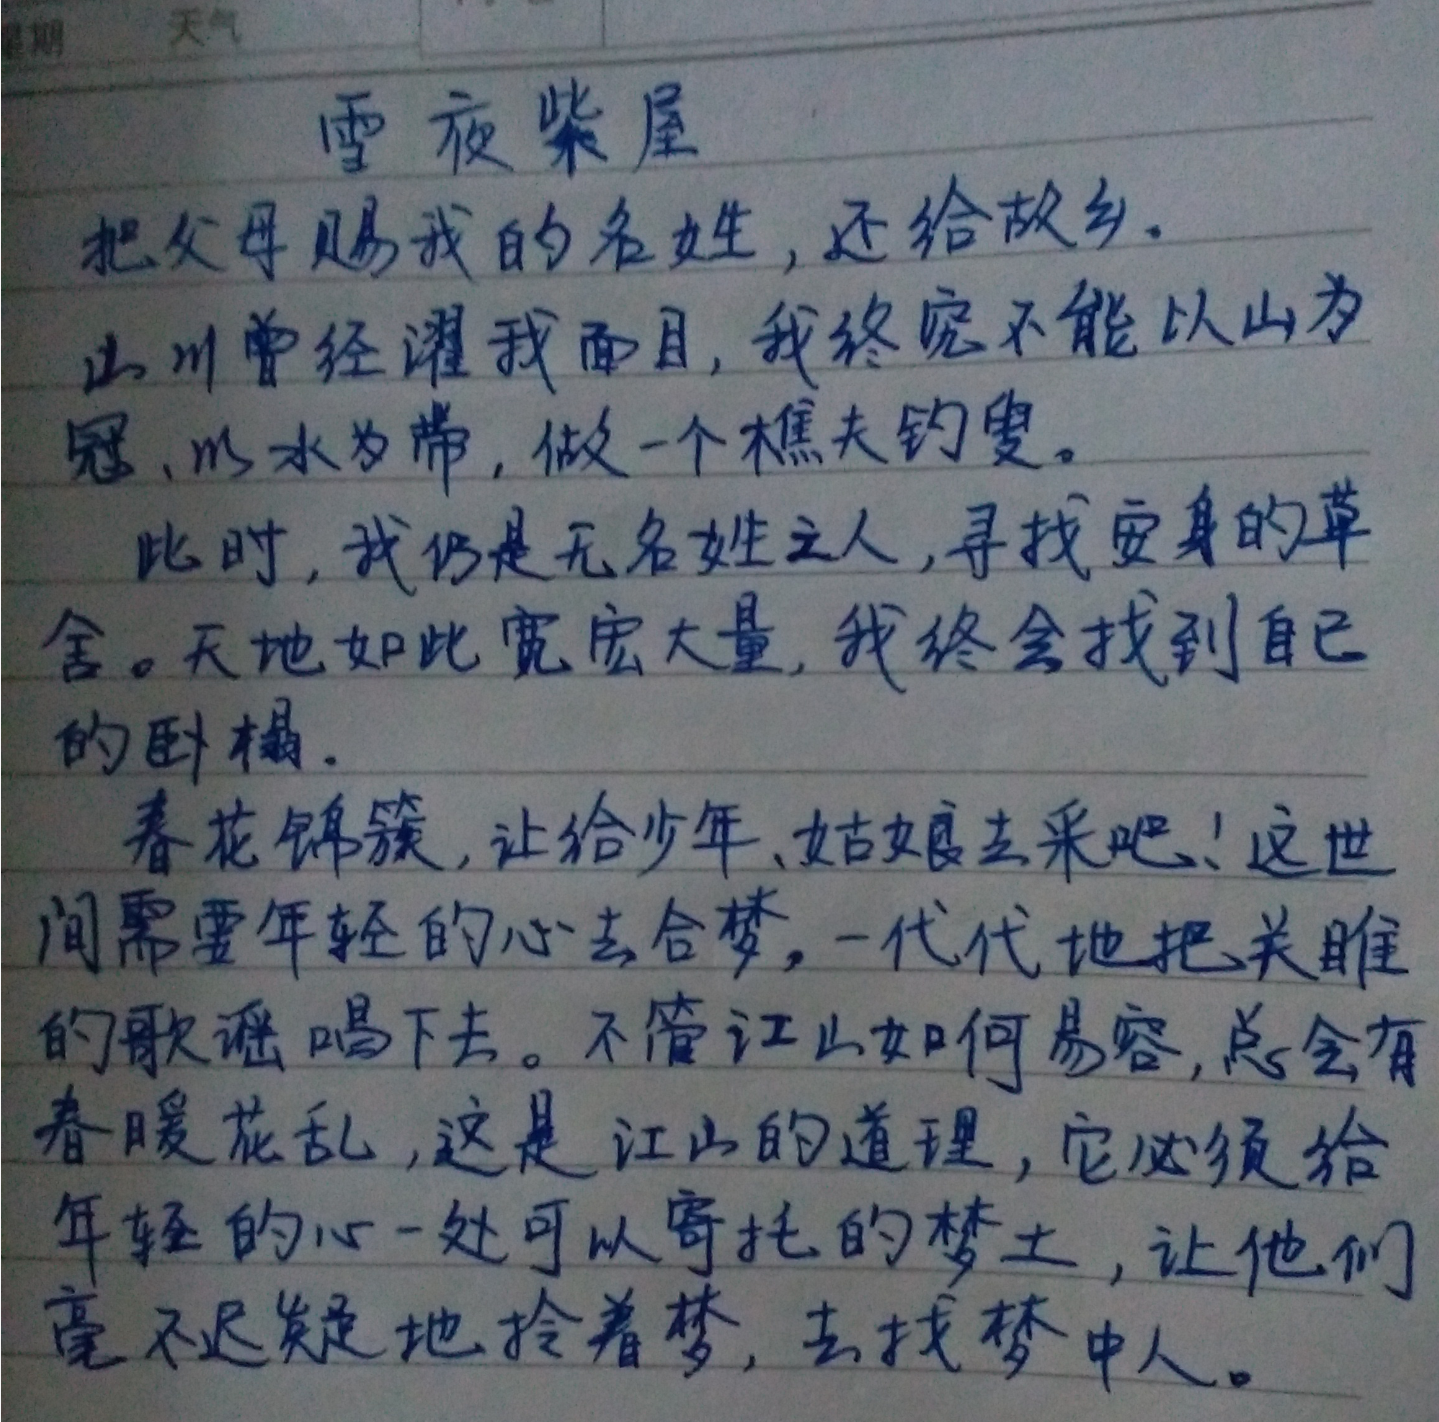 星期 天气
雪夜柴屋
把父母赐我的名姓，还给故乡.
山川曾经濯我面目，我终究不能以山为
冠、以水为带，做一个樵夫钓叟。
此时，我仍是无名姓之人，寻找安身的草
舍。天地如此宽宏大量，我终会找到自己
的卧榻.
春花锦簇，让给少年、姑娘去采吧！这世
间需要年轻的心去合梦，一代代地把关雎
的歌谣唱下去。不管江山如何易容，总会有
春暖花乱，这是江山的道理，它必须给
年轻的心一处可以寄托的梦土，让他们
毫不迟疑地拎着梦，去找梦中人。